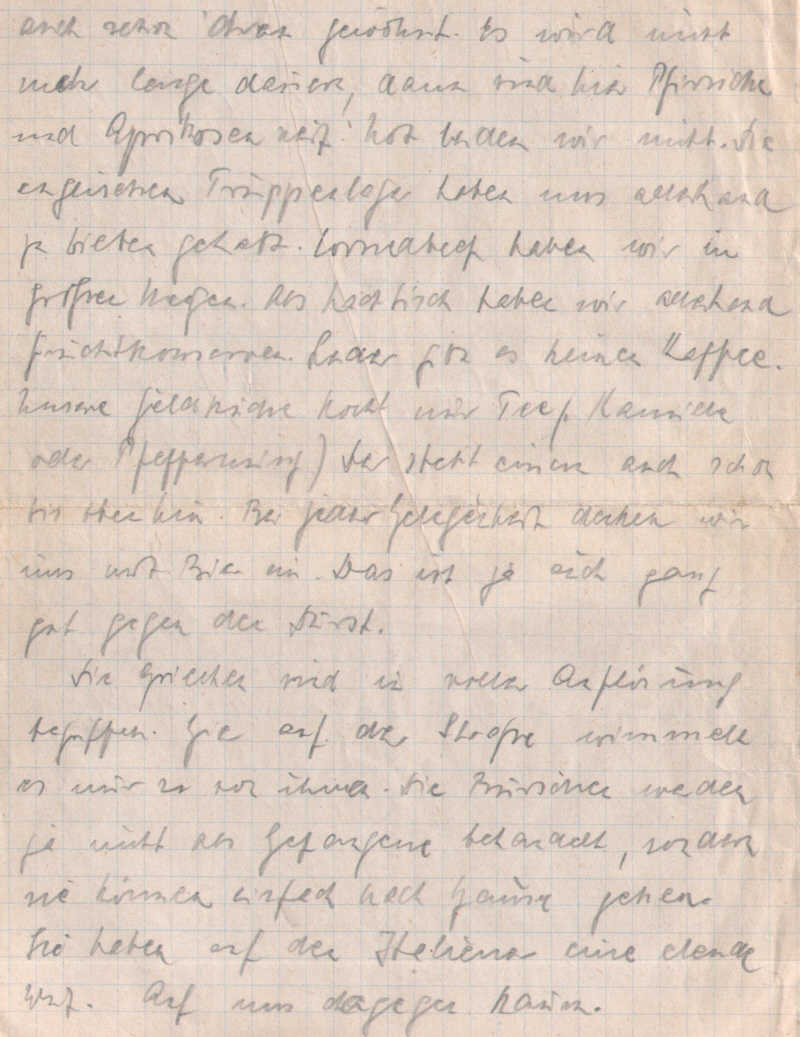 auch schon daran gewöhnt. Es wird nicht
mehr lange dauern, dann sind hier Pfirsiche
und Aprikosen reif! Not leiden wir nicht. Die
englischen Truppenlager haben uns allerhand
zu bieten gehabt. Cornedbeef haben wir in
großen Mengen. Als Nachtisch haben wir allerhand
Fruchtkonserven. Leider gibt es keinen Kaffee.
Unsere Feldküche kocht nur Tee (Kamille
oder Pfefferminz) Der steht einem auch schon
bis oben hin. Bei jeder Gelegenheit decken wir
uns mit Bier ein. Das ist ja auch ganz
gut gegen den Durst.
Die Griechen sind in voller Auflösung
begriffen. Hier auf der Straße wimmelt
es nur so von ihnen. Die Burschen werden
ja nicht als Gefangene behandelt, sondern
sie können einfach nach Hause gehen.
Sie haben auf den Italiener eine elende
Wut. Auf uns dagegen kaum.